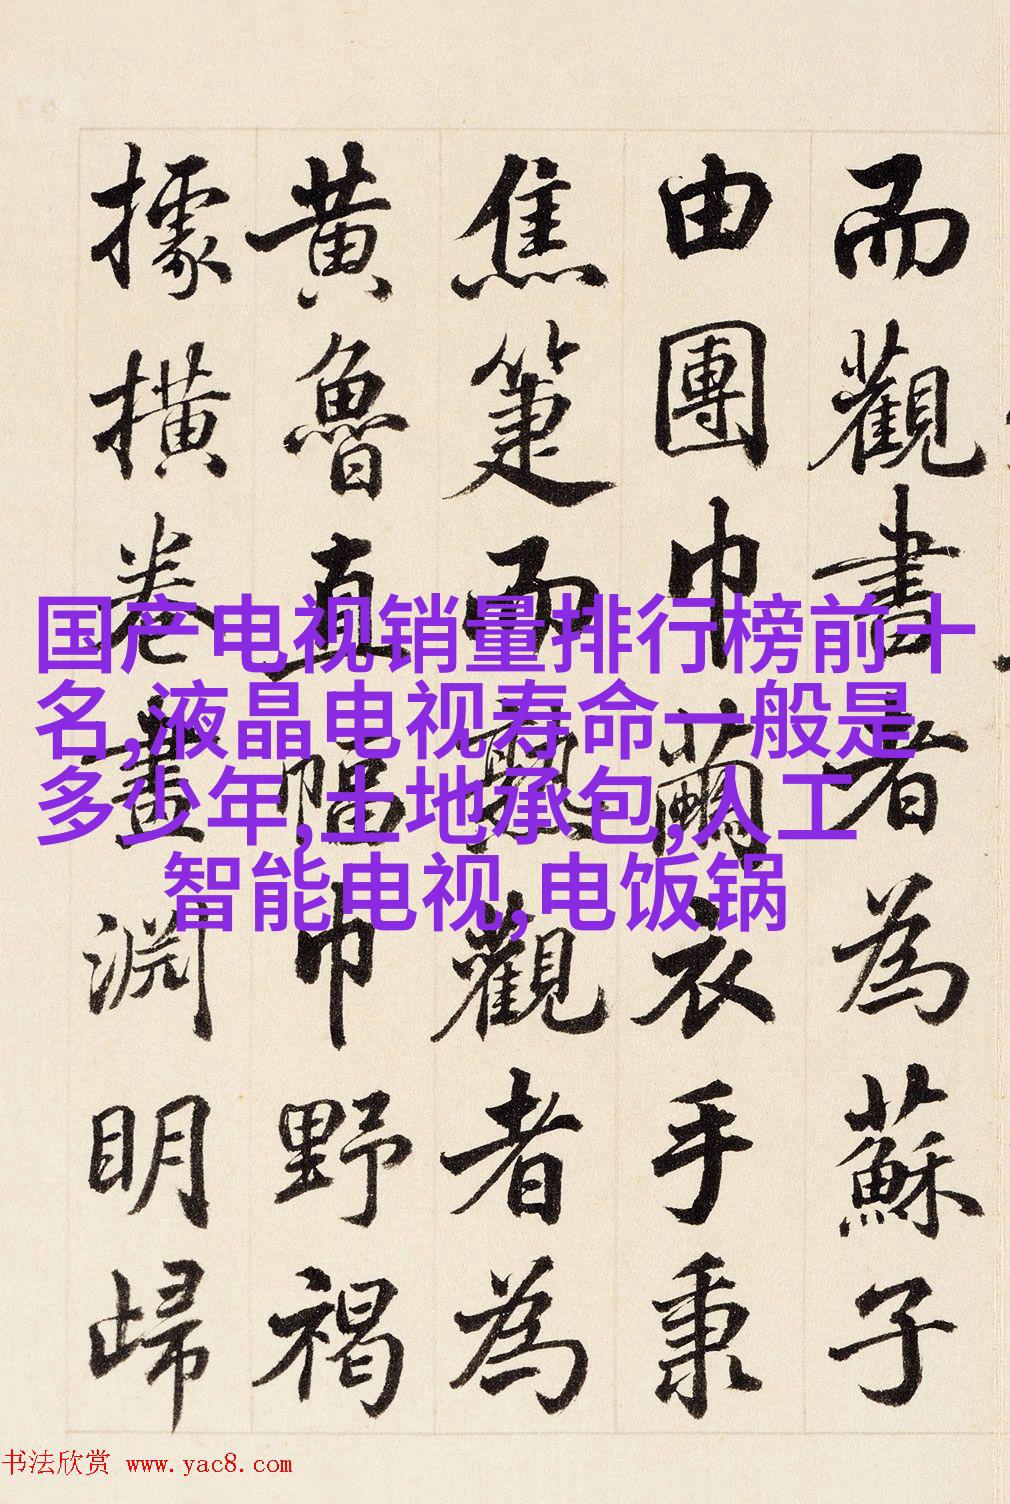 而觀書者為蘇子
由團巾繭衣手秉
焦箑而熟觀者為
黃魯直幅巾野褐
據橫卷畫淵明歸
国产电视销量排行榜前十
名,液晶电视寿命一般是
多少年,土地承包,人工
智能电视,电饭锅
书法欣赏 www.yac8.com